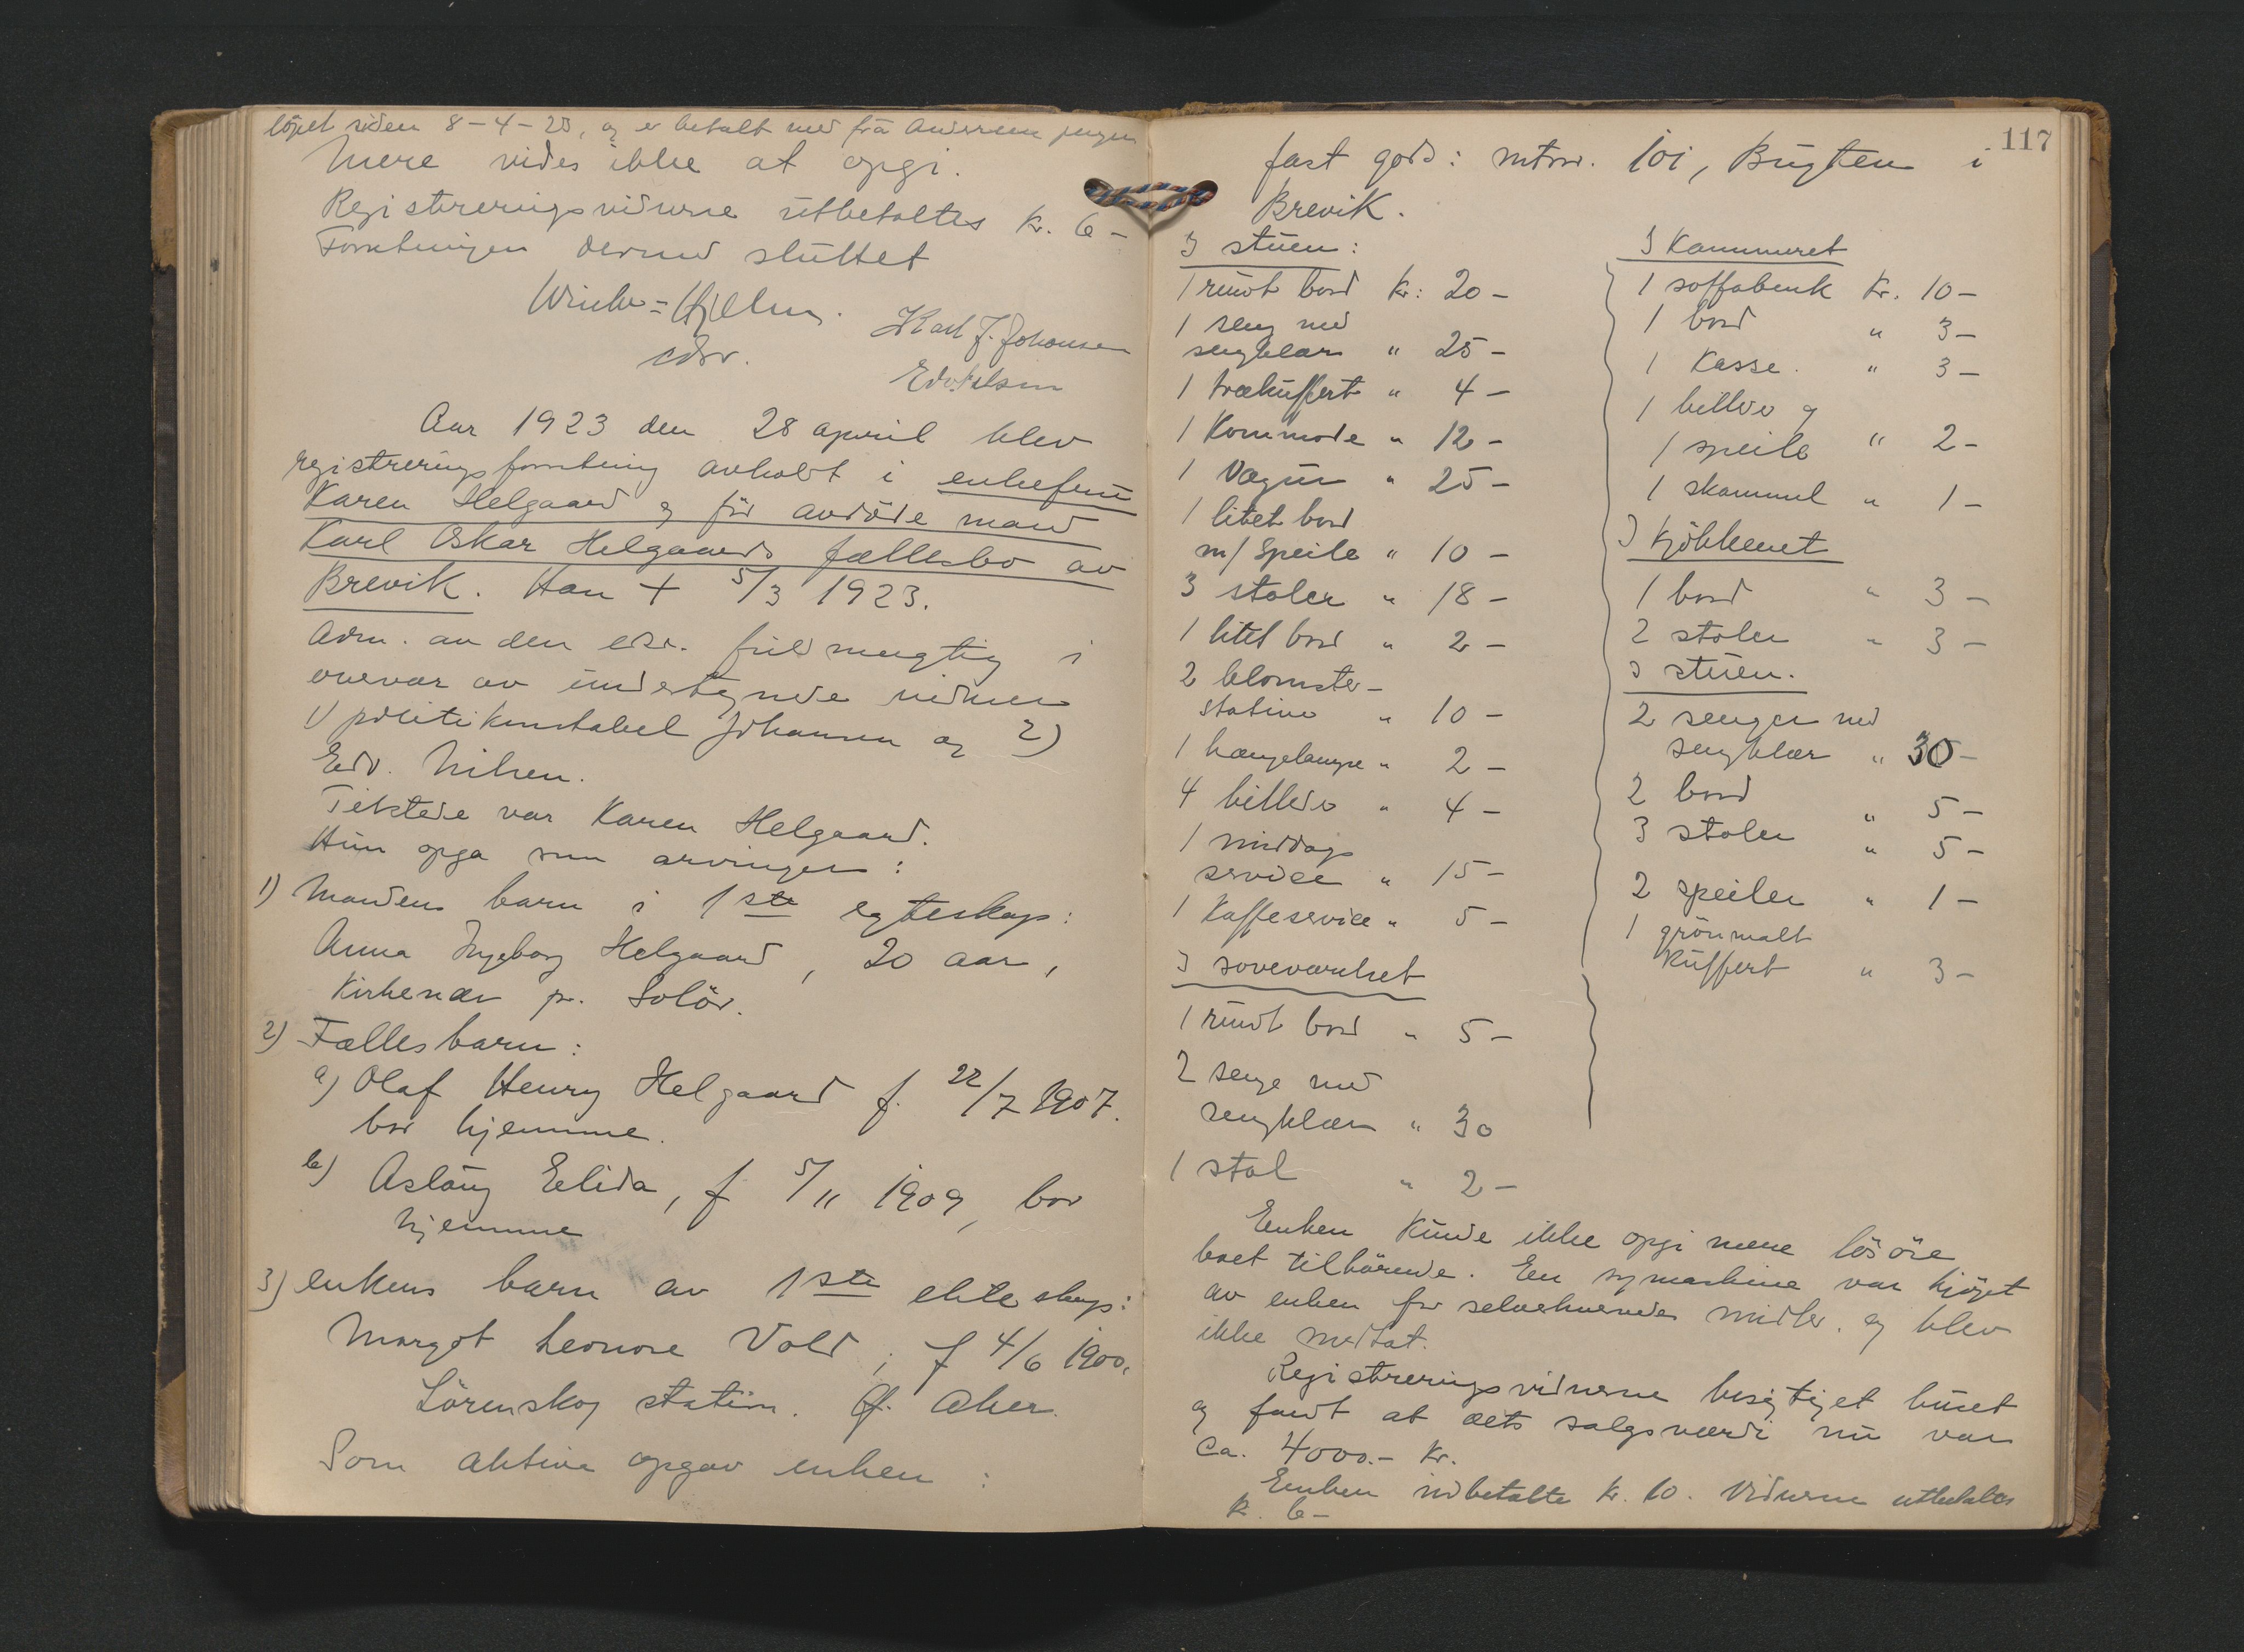 löpet siden 8-4-23, og er betalt med fra Andersens penger
Mere vides ikke at opgi.
Registreringsvidnerne utbetaltes kr. 6-
Forretningen dermed sluttet
Winter-Hjelm.
edsv.
Karl J. Johansen
Edv. Nilsen
Aar 1923 den 28 april blev
registreringsforretning avholdt i enkefru
Karen Helgaard og før avdöde mand
Karl Oskar Helgaards fællesbo av
Brevik. Han + 5/3 1923.
Adm. av den edsv. fuldmægtig i
overvær av undertegnede vidner
1) politikonstabel Johansen og 2)
Edv. Nilsen.
Tilstede var Karen Helgaard.
Hun opga som arvinger:
1) Mandens barn i 1ste egteskap:
Anna Ingeborg Helgaard, 20 aar,
Kirkenær pr. Solör.
2) Fællesbarn:
a) Olaf Henry Helgaard f. 22/7 1907.
bor hjemme.
b) Aslaug Elida, f 5/11 1909, bor
hjemme
3) enkens barn av 1ste ekteskap:
Margot Leonore Vold, f 4/6 1900,
Lörenskog station. Ø. Aker.
Som aktiva opgav enken:
117
fast gods: mtrnr. 101, Bugten i
Brevik.
I stuen:
1 rundt bord kr: 20-
1 seng med
sengklær " 25-
1 trækuffert " 4-
1 Kommode " 12-
1 Vægur " 25-
1 litet bord
m/ Speile " 10-
3 stoler " 18-
1 litet bord " 2-
2 blomster-
stativer " 10-
1 hængelampe " 2-
4 billeder " 4-
1 middags
service " 15-
1 Kaffeservice " 5-
I soveværelset
1 rundt bord " 5-
2 senge med
sengklær " 30
1 stol " 2-
I Kammeret
1 soffabenk kr. 10-
1 bord " 3-
1 Kasse. " 3-
1 billede og
1 speile " 2-
1 skammel " 1-
I Kjökkenet
1 bord " 3-
2 stoler " 3-
I stuen.
2 senger med
sengklær " 30-
2 bord " 5-
3 stoler " 5-
2 speiler " 1-
1 grönmalt
Kuffert " 3-
Enken kunde ikke opgi mere lösöre
boet tilhörende. En symaskine var kjöpt
av enken for selverhvervede midler. og blev
ikke medtat.
Registreringsvidnerne besigtiget huset
og fandt at dets salgsværdi nu var
ca. 4000.- kr.
Enken indbetalte kr. 10. Vidnerne utbetaltes
kr. 6-